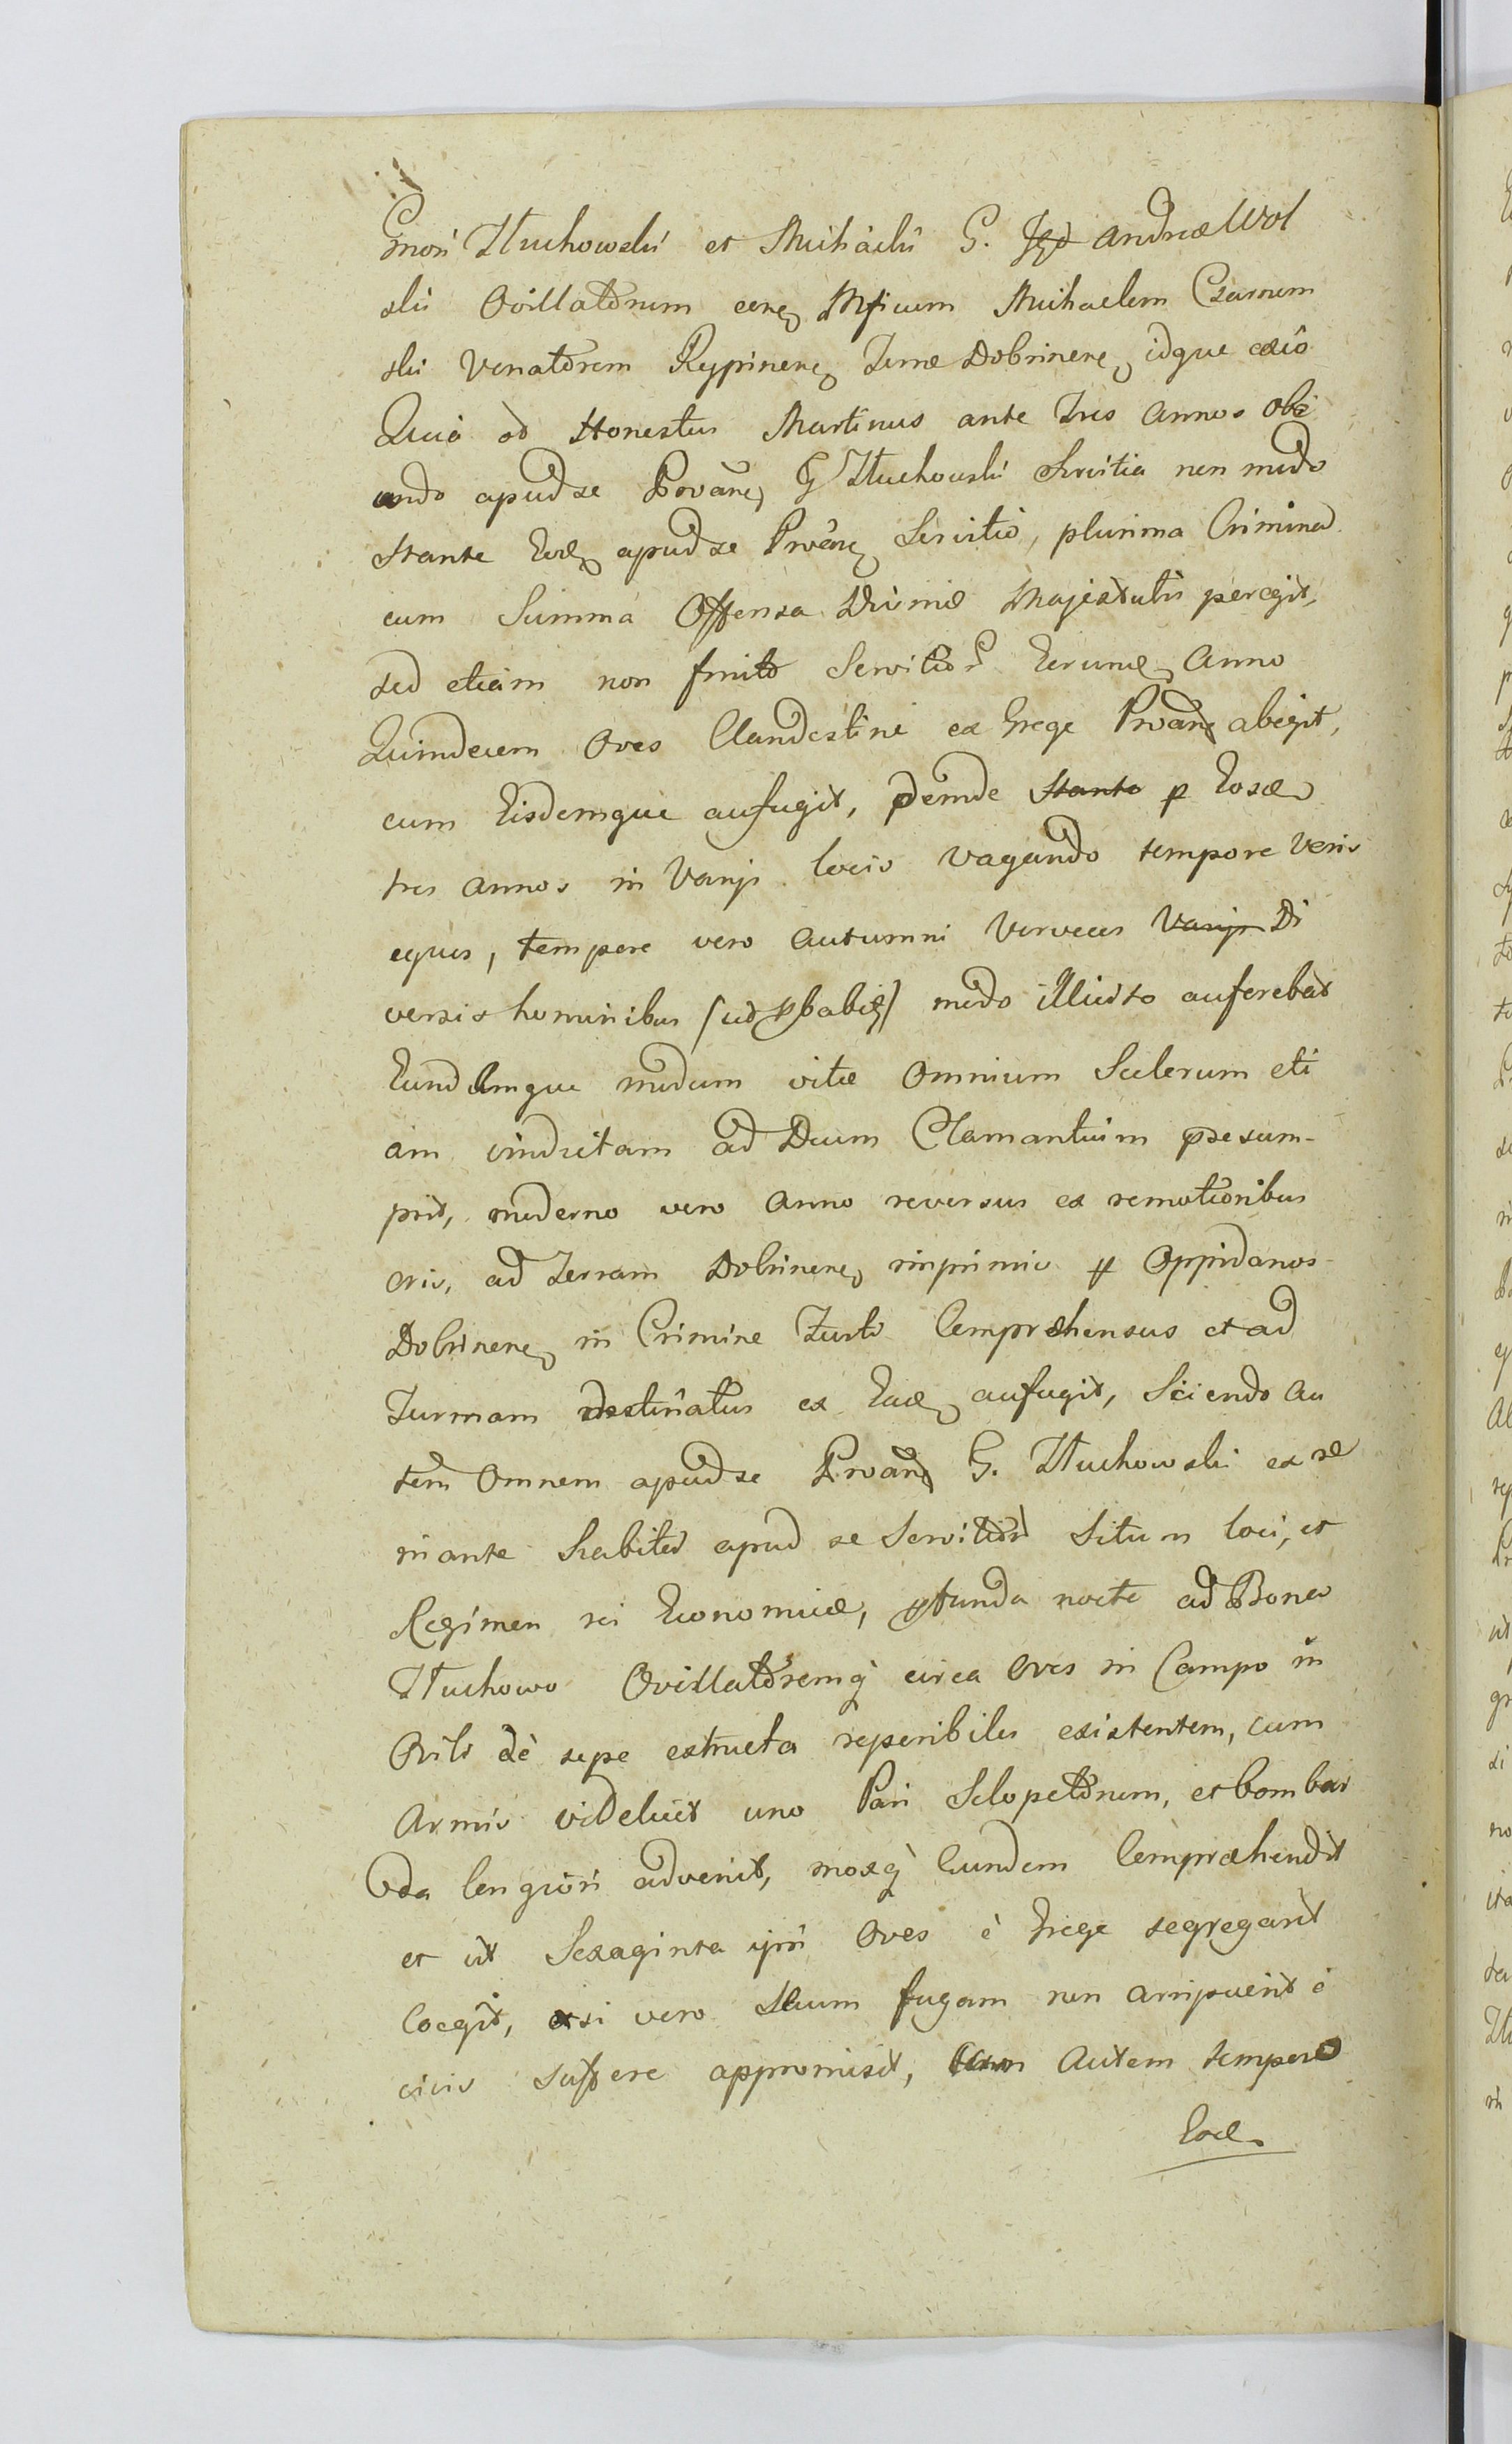 Gnosi Tłuchowski et Michaelis G. Jgo Andreæ Wol
ski Ovillatorum coræ Mficum Michaelem Czarnom
ski Venatorem Rypinenẽ Terræ Dobrinenẽ idque exîo
Quia ad Honestus Martinus ante Tres annos obe
undo apud se Provanẽ G Tłuchowski Servitia non modo
Stante Eodẽ apud se Prvãnẽ Servitio, plurima Crimina
cum Summa Offensa Divinæ Majestatis peregit,
sed etiam non finito Servitio Eorundẽ Anno
Quindecem Oves Clandestine ex Grege Prvãnẽ abegit,
cum Eisdemque aufugit, deinde Stante p Eosdẽ
tres annos in varijs locis vagando tempore Veris
equos, tempore vero autumni Verveces Varijs Di
versis hominibus [ut pbabitẽ] modo illicito auferebat
Eundemque modum vitæ omnium Scelerum eti
am vindictam ad Deum Clamantium præsum-
psit, moderno vero Anno reversus ex remotioribus
oris, ad Terram Dobrinenẽ inprimis p Oppidanos
Dobrinenẽ in Crimine Furti Compræhensus et ad
Turmam destinatus ex Eadẽ aufugit, Sciendo au
tem Omnem apud se Prvanẽ G. Tłuchowski ex re
in ante habita apud se Servitior Situm loci, et
Regimen rei Economicæ, pfunda nocte ad Bona
Tłuchowo Ovillatoremq̀ circa Oves in Campo in
Ovili dè sepe extructa reperibiles existentem, cum
Armis videlicet uno Pari Sclopetorum, et bombar
da longiori advenit, moxq̀ Eundem Compræhendit
et ut Sexaginta ipsi Oves è Grege segregarit
Coegit, et si vero Secum fugam non arripuerit è
civis suffere appromisit, autem tempore
Eodẽ